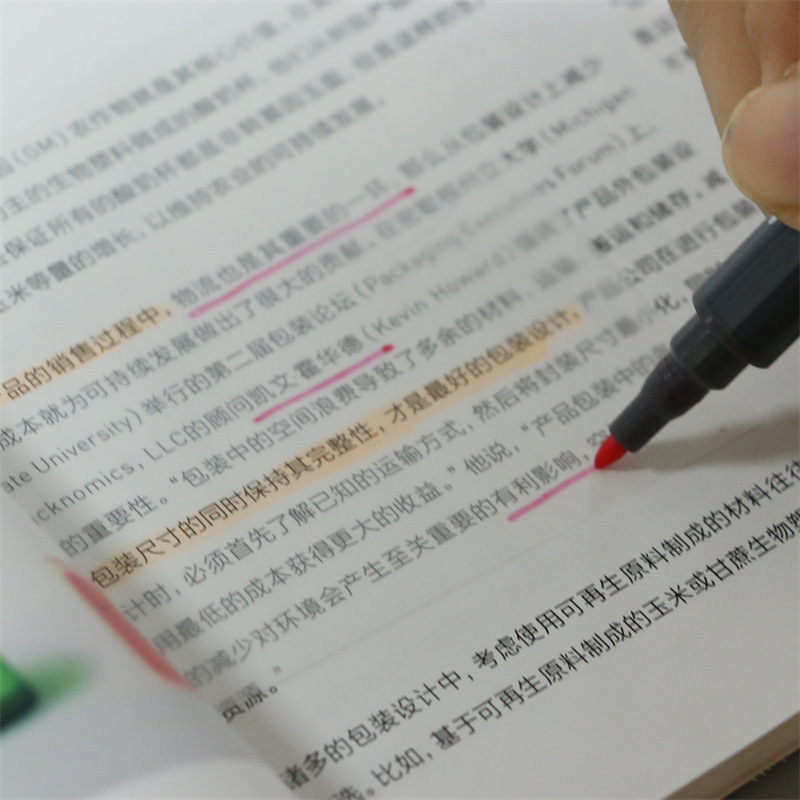 (GM)农作物原是其核心价值,
为主的生物塑料做成的酸奶杯,
保证所有的酸奶杯都是非转基因玉米,
玉米等量的增长,以维持农业的可持续发展。
品的销售过程中,物流也是其重要的一环,那么从包装设计上减少
成本就为可持续发展做出了很大的贡献。在密歇根州立大学(Michigan
ate University)举行的第二届包装论坛(Packaging Executives Forum)上,
cknomics, LLC的顾问凯文霍华德(Kevin Howard)强调了产品外包装设
的重要性。“包装中的空间浪费导致了多余的材料、运输、搬运和储存,减
包装尺寸的同时保持其完整性,才是最好的包装设计,产品公司在进行包装
计时,必须首先了解已知的运输方式,然后将封装尺寸最小化,同时
用最低的成本获得更大的收益。”他说,“产品包装中的
的减少对环境会产生至关重要的有利影响,
资源。”
诸多的包装设计中,考虑使用可再生原料制成的材料往往
选。比如,基于可再生原料制成的玉米或甘蔗生物塑